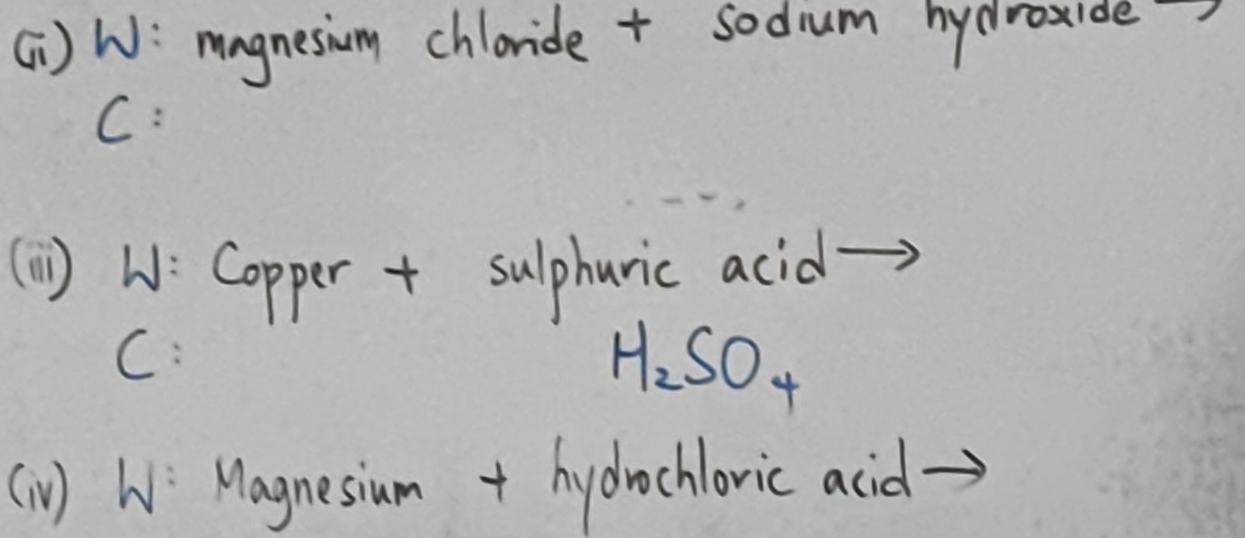 (ii) W: magnesium chloride + sodium hydroxide →
C:
(iii) W: Copper + sulphuric acid →
C: H₂SO₄
(iv) W: Magnesium + hydrochloric acid →